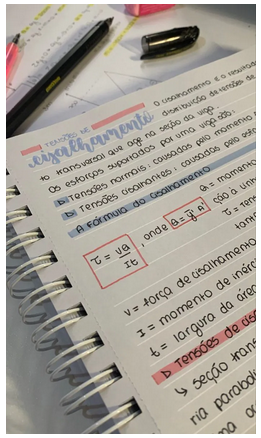 TENSÕES DE
cisalhamento
O cisalhamento é o resultado
distribuição de tensões de
to transversal que age na seção da viga.
Os esforços suportados por uma viga são:
↳ Tensões normais: causadas pelo momento
↳ Tensões cisalhantes: causadas pelo esfo
A fórmula do cisalhamento
τ = VQ / It , onde Q = ȳ'A'
Q = momento
ção à linh
τ = tens
tânc
V = força de cisalhamento
I = momento de inérc
t = largura da área
↳ Tensões de cis
↳ seção trans
ria parabóli